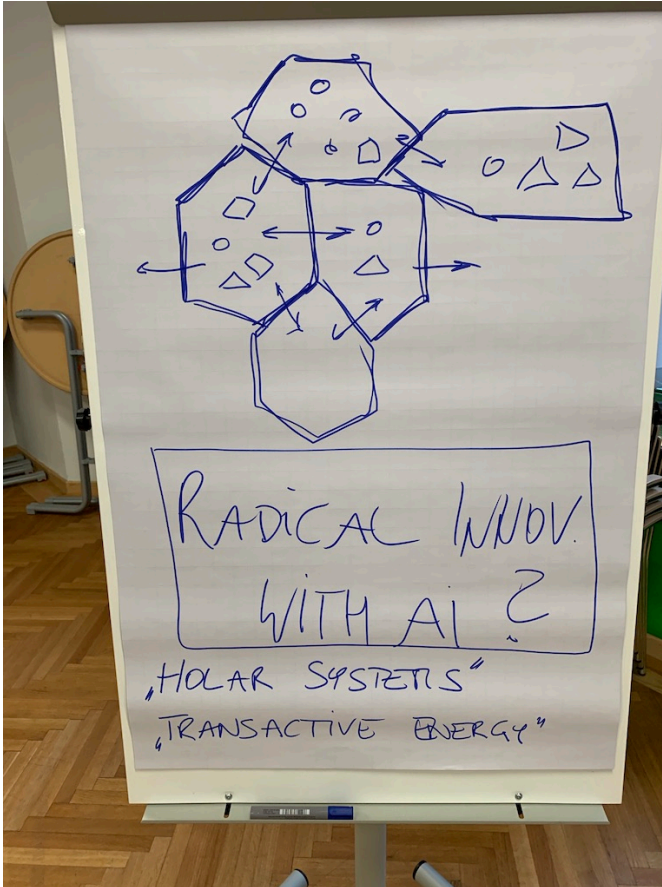 RADICAL INNOV.
WITH AI ?
„HOLAR SYSTEMS"
„TRANSACTIVE ENERGY"